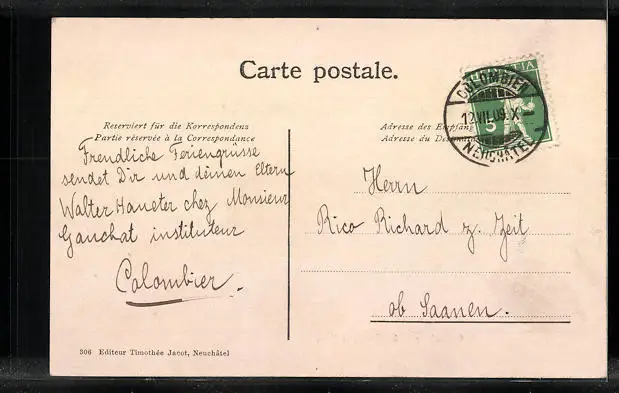 Carte postale.
HELVETIA
5
COLOMBIER
12.VII.09.X
NEUCHÂTEL
Reserviert für die Korrespondenz
Partie réservée à la Correspondance
Adresse des Empfäng
Adresse du Destinat
Frendliche Feriengrüsse
sendet Dir und deinen Eltern
Walter Haueter chez Monsieur
Gauchat instituteur
Colombier.
Herrn
Rico Richard z. Zeit
ob Saanen.
306 Editeur Timothée Jacot, Neuchâtel